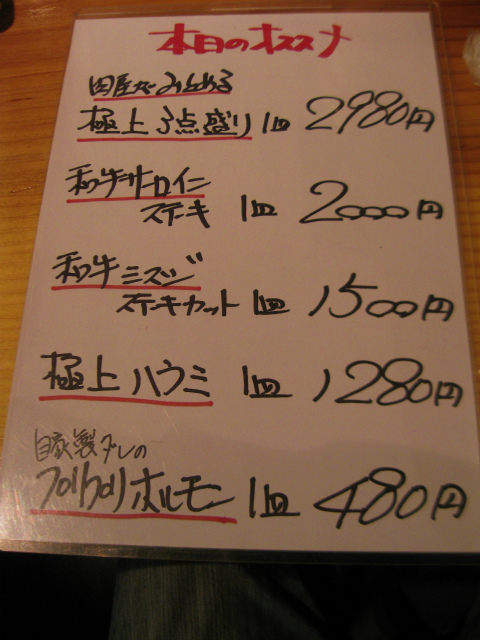 本日のオススメ
肉屋がみとめる
極上3点盛り 1皿 2980円
和牛サーロイン
ステーキ 1皿 2000円
和牛ミスジ
ステーキカット 1皿 1500円
極上ハラミ 1皿 1280円
自家製ダレの
プリプリホルモン 1皿 480円